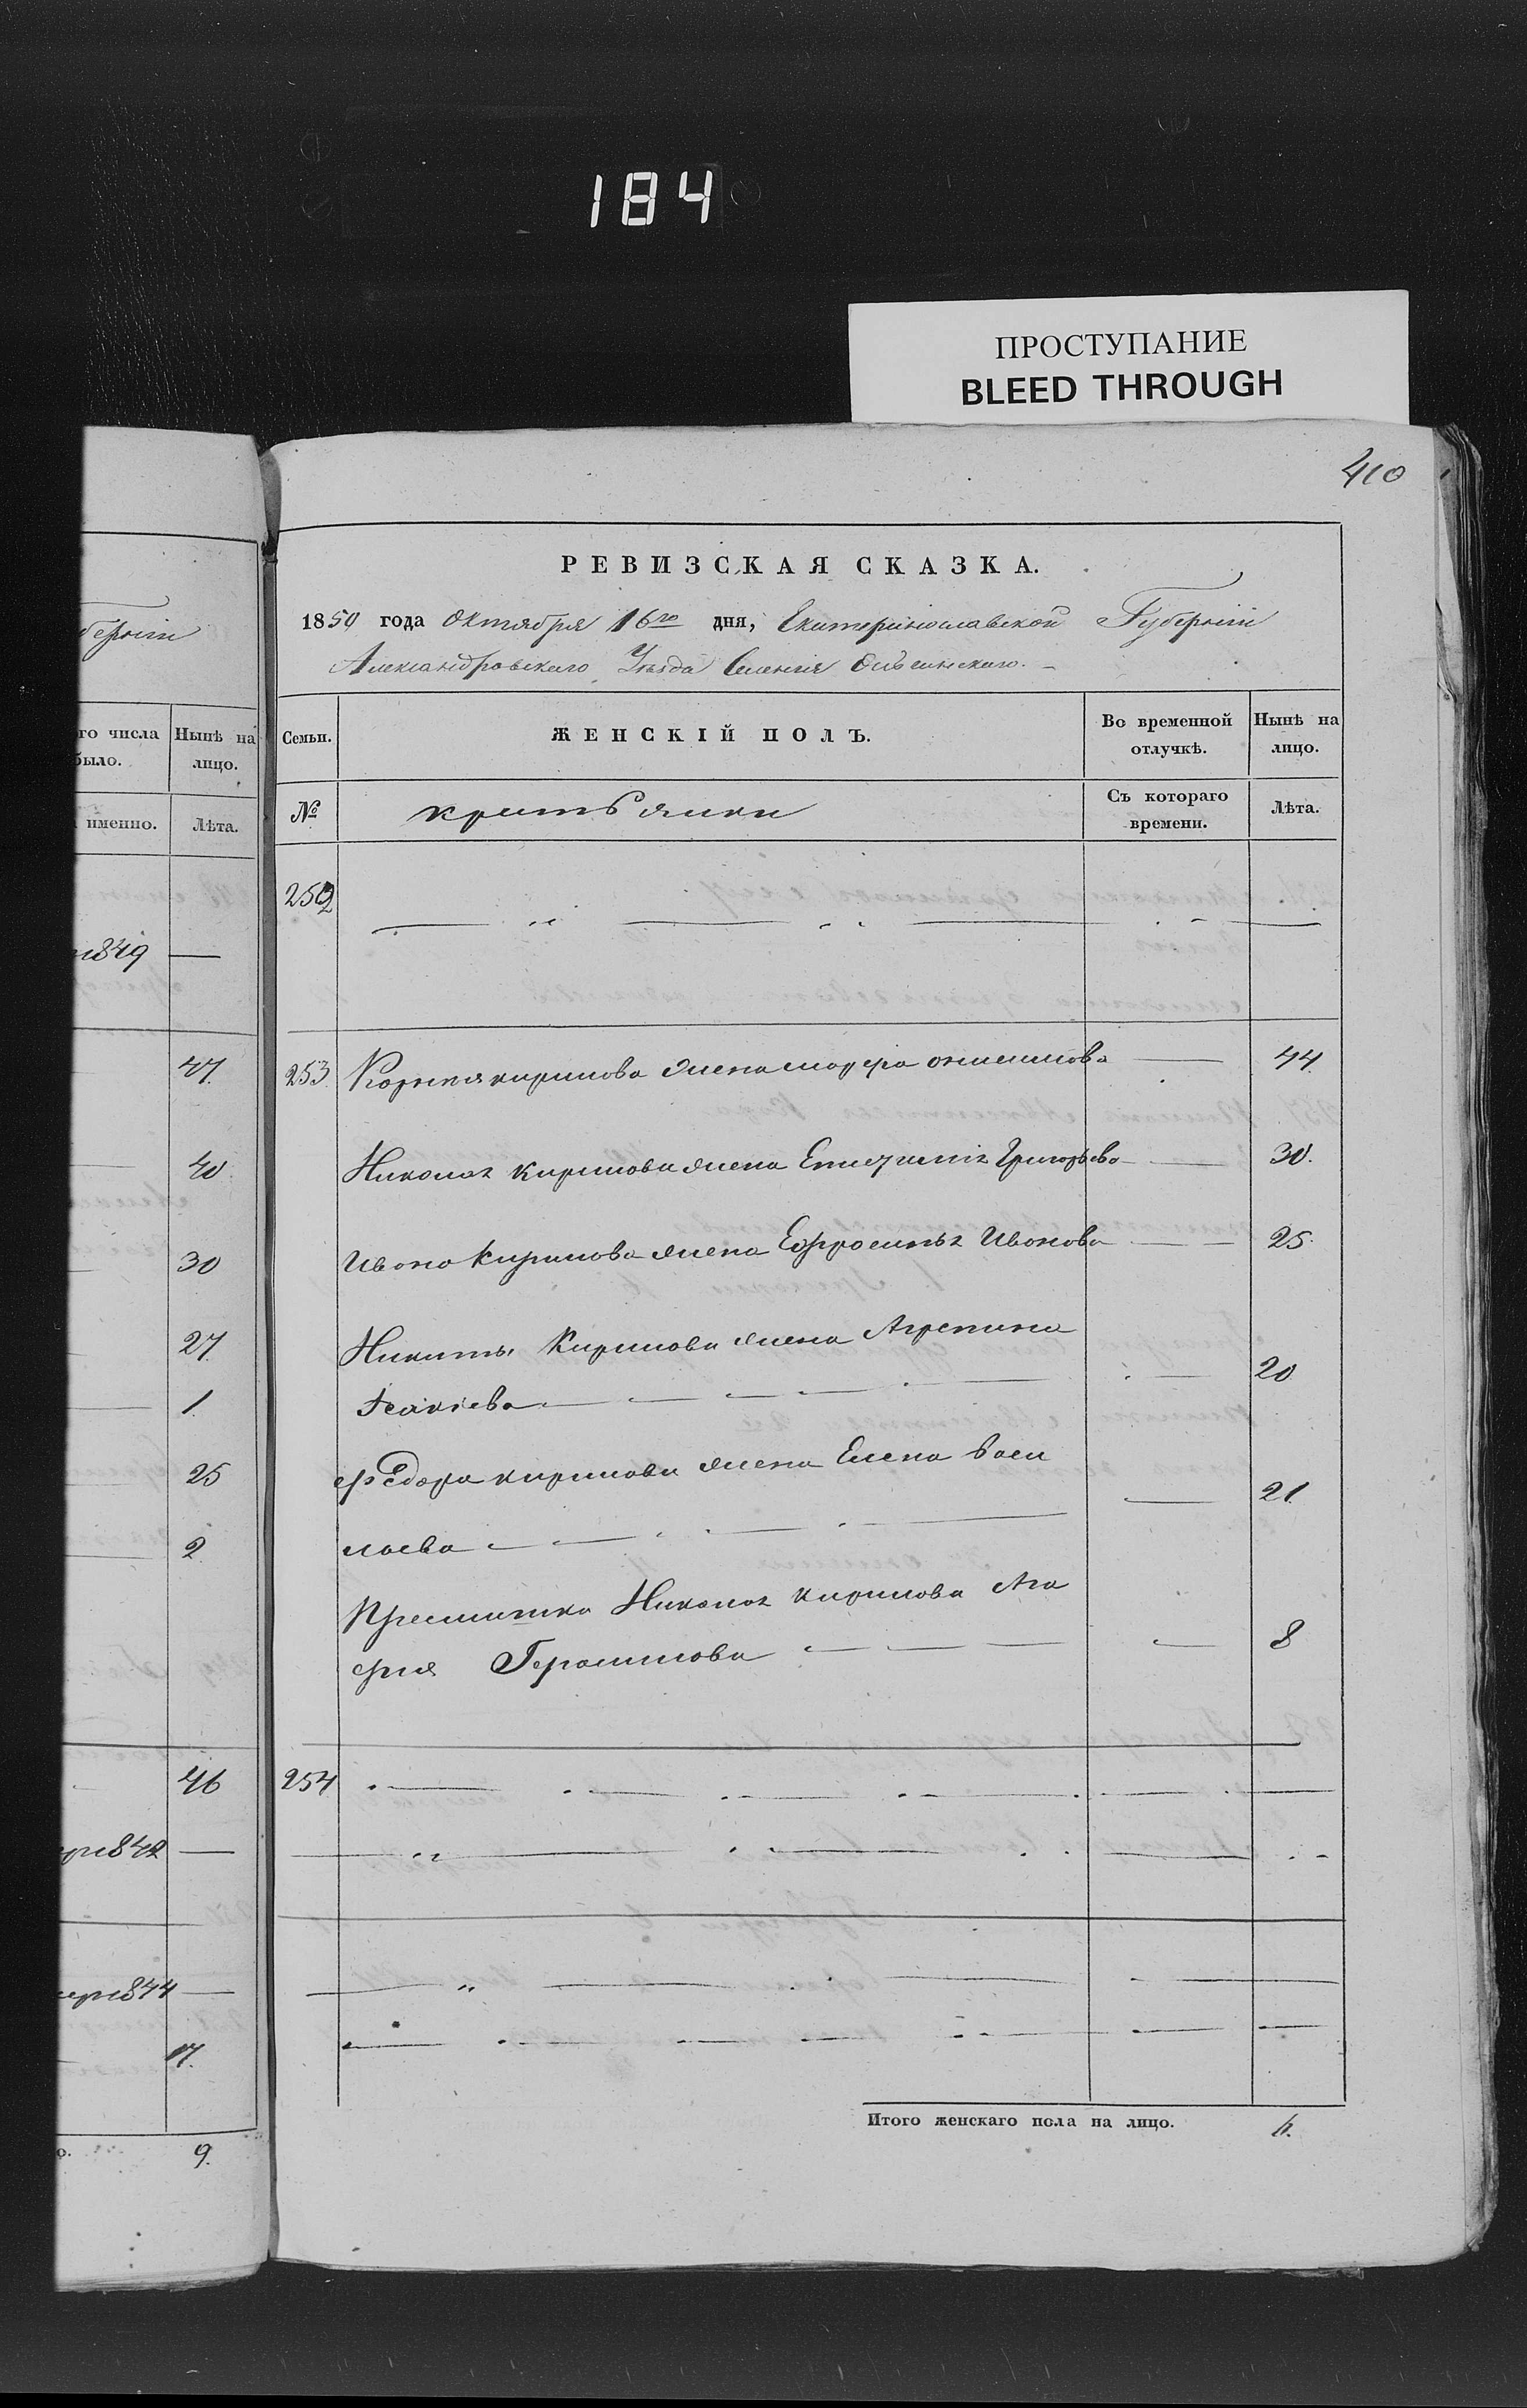 184
ПРОСТУПАНИЕ
BLEED THROUGH
410
РЕВИЗСКАЯ СКАЗКА.
1850 года Октября 16го дня, Екатеринославской Губерніи
Александровскаго Уѣзда Селенія
Семьи.
ЖЕНСКІЙ ПОЛЪ.
Во временной отлучкѣ.
Нынѣ на лицо.
№
Съ котораго времени.
Лѣта.
252
253. Корнея кирилова жена 44.
Николая кирилова жена Григорьева 30.
Ивана Кирилова жена Ефросинья Иванова 25.
Никиты Кирилова жена Агрепина
Исакіева 20
Федора кирилова жена Елена Васи
лаева 21.
Николая кирилова Ага
фия Герасимова 8
254
Итого женскаго пола на лицо. 6.
губерніи
го числа
было.
Нынѣ на лицо.
именно.
Лѣта.
1849
47.
40
30
27.
1.
25
2
46
1842
1844
17.
9.